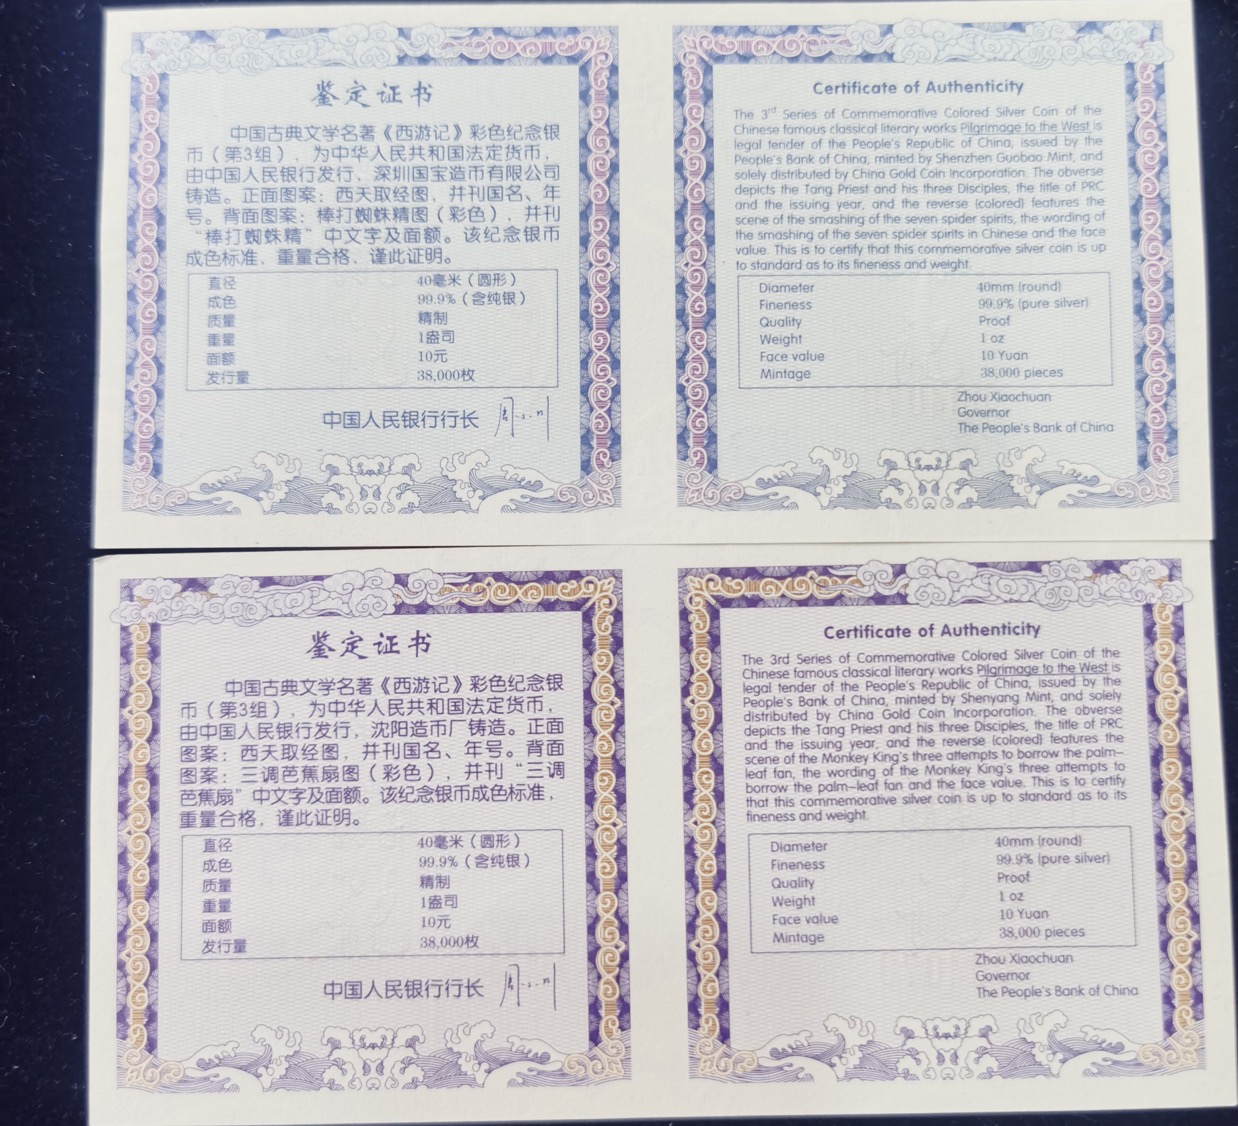 鉴定证书
中国古典文学名著《西游记》彩色纪念银
币（第3组），为中华人民共和国法定货币，
由中国人民银行发行，深圳国宝造币有限公司
铸造。正面图案：西天取经图，并刊国名、年
号。背面图案：棒打蜘蛛精图（彩色），并刊
“棒打蜘蛛精”中文字及面额。该纪念银币
成色标准，重量合格，谨此证明。
直径 40毫米（圆形）
成色 99.9%（含纯银）
质量 精制
重量 1盎司
面额 10元
发行量 38,000枚
中国人民银行行长
Certificate of Authenticity
The 3rd Series of Commemorative Colored Silver Coin of the
Chinese famous classical literary works Pilgrimage to the West is
legal tender of the People's Republic of China, issued by the
People's Bank of China, minted by Shenzhen Guobao Mint, and
solely distributed by China Gold Coin Incorporation. The obverse
depicts the Tang Priest and his three Disciples, the title of PRC
and the issuing year, and the reverse (colored) features the
scene of the smashing of the seven spider spirits, the wording of
the smashing of the seven spider spirits in Chinese and the face
value. This is to certify that this commemorative silver coin is up
to standard as to its fineness and weight.
Diameter 40mm (round)
Fineness 99.9% (pure silver)
Quality Proof
Weight 1 oz
Face value 10 Yuan
Mintage 38,000 pieces
Zhou Xiaochuan
Governor
The People's Bank of China
鉴定证书
中国古典文学名著《西游记》彩色纪念银
币（第3组），为中华人民共和国法定货币，
由中国人民银行发行，沈阳造币厂铸造。正面
图案：西天取经图，并刊国名、年号。背面
图案：三调芭蕉扇图（彩色），并刊“三调
芭蕉扇”中文字及面额。该纪念银币成色标准，
重量合格，谨此证明。
直径 40毫米（圆形）
成色 99.9%（含纯银）
质量 精制
重量 1盎司
面额 10元
发行量 38,000枚
中国人民银行行长
Certificate of Authenticity
The 3rd Series of Commemorative Colored Silver Coin of the
Chinese famous classical literary works Pilgrimage to the West is
legal tender of the People's Republic of China, issued by the
People's Bank of China, minted by Shenyang Mint, and solely
distributed by China Gold Coin Incorporation. The obverse
depicts the Tang Priest and his three Disciples, the title of PRC
and the issuing year, and the reverse (colored) features the
scene of the Monkey King's three attempts to borrow the palm-
leaf fan, the wording of the Monkey King's three attempts to
borrow the palm-leaf fan and the face value. This is to certify
that this commemorative silver coin is up to standard as to its
fineness and weight.
Diameter 40mm (round)
Fineness 99.9% (pure silver)
Quality Proof
Weight 1 oz
Face value 10 Yuan
Mintage 38,000 pieces
Zhou Xiaochuan
Governor
The People's Bank of China